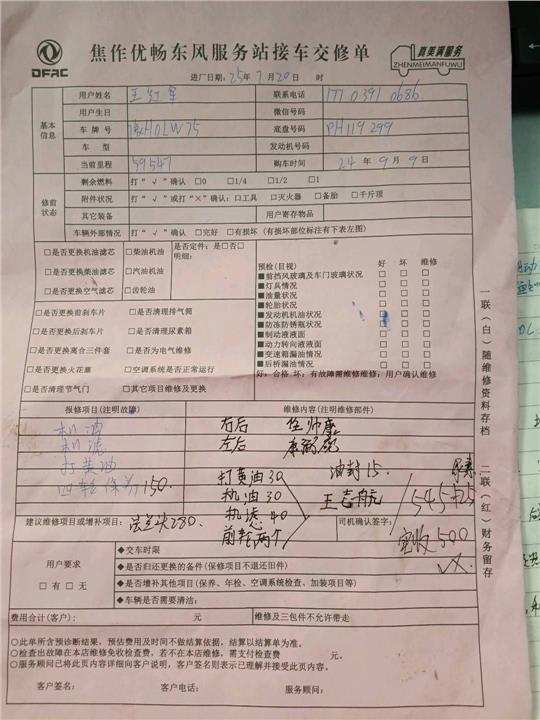 DFAC
焦作优畅东风服务站接车交修单
真美满服务
ZHENMEIMANFUWU
进厂日期：25年7月20日 时
基本信息
用户姓名 王红军 联系电话 177 0391 0686
用户生日 微信号码
车牌号 豫H0LW75 底盘号码 PH119299
车型 发动机号码
当前里程 59547 购车时间 24年9月9日
修前状态
剩余燃料 打“√”确认 □0 □1/4 □1/2 □1
附件状况 打“√”或打“×”确认：□工具 □灭火器 □备胎 □千斤顶
其它装备 用户寄存物品
车辆外部情况 打“√”确认 □完好 □有损坏（有损坏部位标注有下表左图）
□是否更换机油滤芯 □柴油机油 是否定件：是□否□
□是否更换柴油滤芯 □汽油机油 明细：
□是否更换空气滤芯 □齿轮油
□是否更换前刹车片 □是否清理排气筒
□是否更换后刹车片 □是否清理尿素箱
□是否更换离合三件套 □是否为电气维修
□是否更换火花塞 □空调系统是否正常运行
□是否清理节气门 □其它项目维修及更换
预检(目视) 好 坏 维修
■前挡风玻璃及车门玻璃状况 □ □ □
■灯具情况 □ □ □
■油量状况 □ □ □
■轮胎状况 □ □ □
■发动机机油状况 □ □ □
■防冻防锈瓶状况 □ □ □
■制动液液面 □ □ □
■动力转向液液面 □ □ □
■变速箱漏油情况 □ □ □
■后桥漏油情况 □ □ □
好：合格 坏：有故障需维修维修：用户确认维修
报修项目（注明故障） 维修内容(注明维修部件)
机油 右后 任帅康
机滤 左后
打黄油 打黄油30 油封15
四轮保养150 机油30 王志航 545
机滤40
前轮两个 实收500
建议维修项目或增补项目： 法兰头280. 司机确认签字：
用户要求
□有 □无
◆交车时限
◆是否归还更换的备件（保修项目不退还旧件）
◆是否增补其他项目（保养、年检、空调系统检查、加装项目等）
◆车辆是否需要清洁：
费用合计(客户)： 元 维修及三包件不允许带走
○此单所含预诊断结果，预估费用及时间不做结算依据，结算以结算单为准。
○检查出故障在本店维修免收检查费，若不在本店维修，需支付检查费 元。
○服务顾问已将此页内容详细向客户说明，客户签名则表示已理解并接受此页内容。
客户签名： 客户电话： 服务顾问：
一联（白）随维修资料存档
二联（红）财务留存